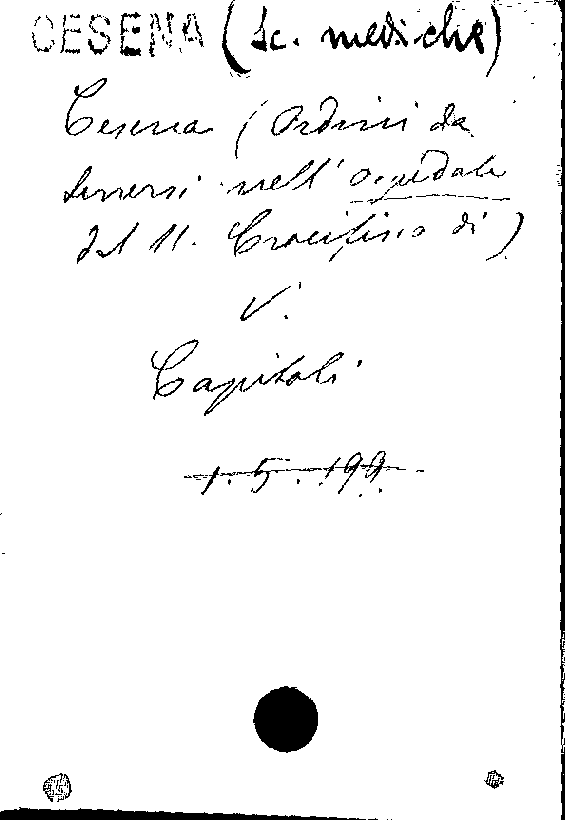 CESENA (Sc. mediche)
Cesena (Ordini da
servarsi nell' Ospedale
del SS. Crocifisso di)
V.
Capitoli
1.5.199.